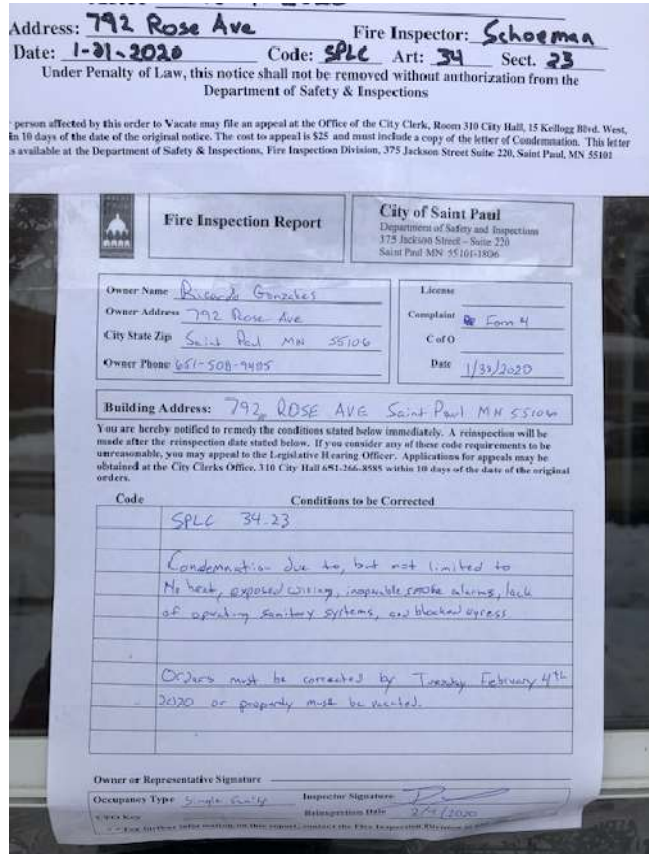 Address: 792 Rose Ave Fire Inspector: Schoeman
Date: 1-31-2020 Code: SPLC Art: 34 Sect. 23
Under Penalty of Law, this notice shall not be removed without authorization from the
Department of Safety & Inspections
person affected by this order to Vacate may file an appeal at the Office of the City Clerk, Room 310 City Hall, 15 Kellogg Blvd. West,
in 10 days of the date of the original notice. The cost to appeal is $25 and must include a copy of the letter of Condemnation. This letter
s available at the Department of Safety & Inspections, Fire Inspection Division, 375 Jackson Street Suite 220, Saint Paul, MN 55101
Fire Inspection Report
City of Saint Paul
Department of Safety and Inspections
375 Jackson Street - Suite 220
Saint Paul MN 55101-1806
Owner Name Ricardo Gonzales
Owner Address 792 Rose Ave
City State Zip Saint Paul MN 55106
Owner Phone 651-508-9485
License
Complaint Form 4
C of O
Date 1/31/2020
Building Address: 792 ROSE AVE Saint Paul MN 55106
You are hereby notified to remedy the conditions stated below immediately. A reinspection will be
made after the reinspection date stated below. If you consider any of these code requirements to be
unreasonable, you may appeal to the Legislative Hearing Officer. Applications for appeals may be
obtained at the City Clerks Office, 310 City Hall 651-266-8585 within 10 days of the date of the original
orders.
Code Conditions to be Corrected
SPLC 34.23
Condemnation due to, but not limited to
No heat, exposed wiring, inoperable smoke alarms, lack
of operating sanitary systems, and blocked egress.
Orders must be corrected by Tuesday February 4th
2020 or property must be vacated.
Owner or Representative Signature
Occupancy Type Single Family Inspector Signature
Reinspection Date 2/4/2020
For further information on this report, contact the Fire Inspection Division at